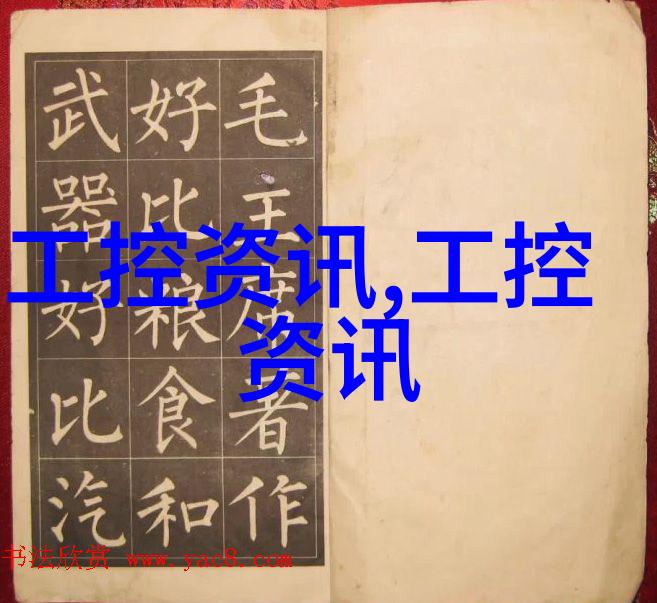 毛主席著作
好比粮食和
武器好比汽
工控资讯,工控
资讯
书法欣赏 www.yac8.com